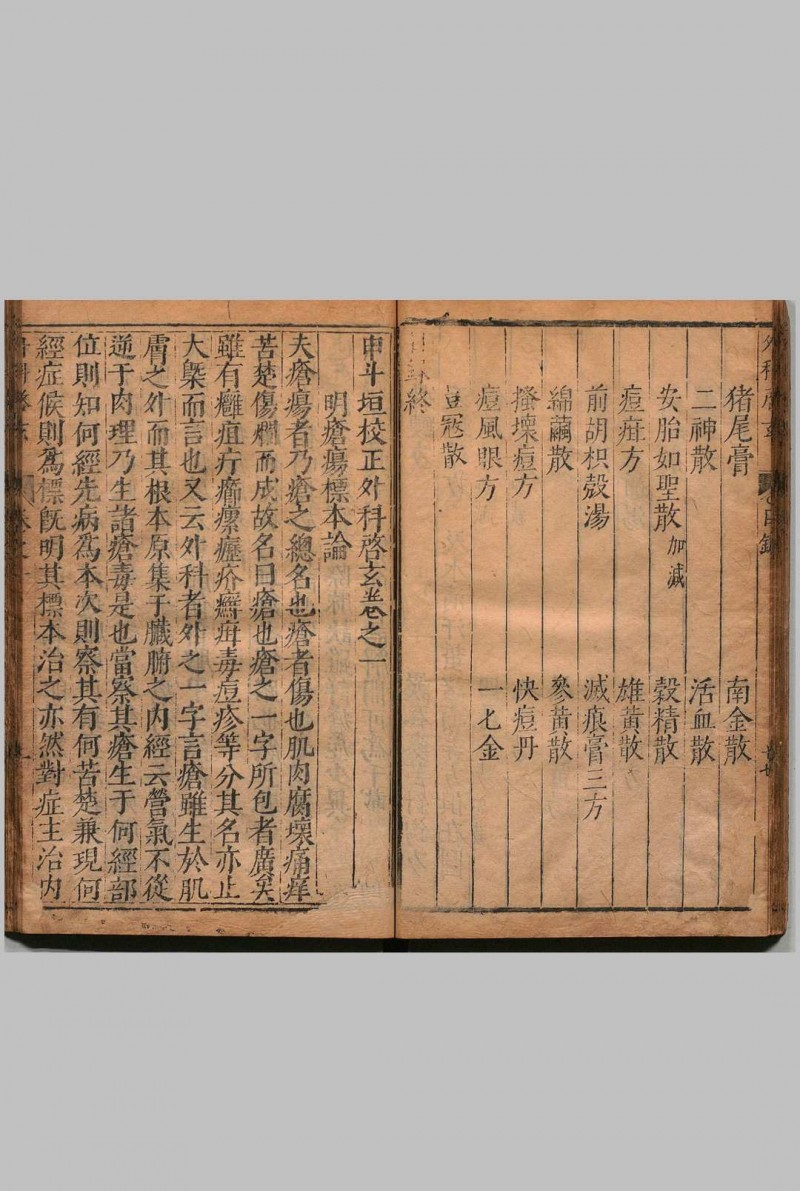 外科啓玄 目錄
猪尾膏 南金散
二神散 活血散
安胎如聖散加減 穀精散
痘疳方 雄黃散
前胡枳殼湯 滅痕膏三方
綿繭散 參黃散
搔壞痘方 快痘丹
痘風眼方 一七金
豆冦散
目錄終
申斗垣校正外科啓玄卷之一
明瘡瘍標本論
夫瘡瘍者乃瘡之總名也瘡者傷也肌肉腐壞痛痒
苦楚傷爛而成故名曰瘡也瘡之一字所包者廣矣
雖有癰疽疔癤瘰癧疥癬疳毒痘疹等分其名亦止
大槩而言也又云外科者外之一字言瘡雖生於肌
膚之外而其根本原集于臟腑之內經云營氣不從
逆于肉理乃生諸瘡毒是也當察其瘡生于何經部
位則知何經先病為本次則察其有何苦楚兼現何
經症候則為標旣明其標本治之亦然對症主治內
外科啓玄 卷之一 一